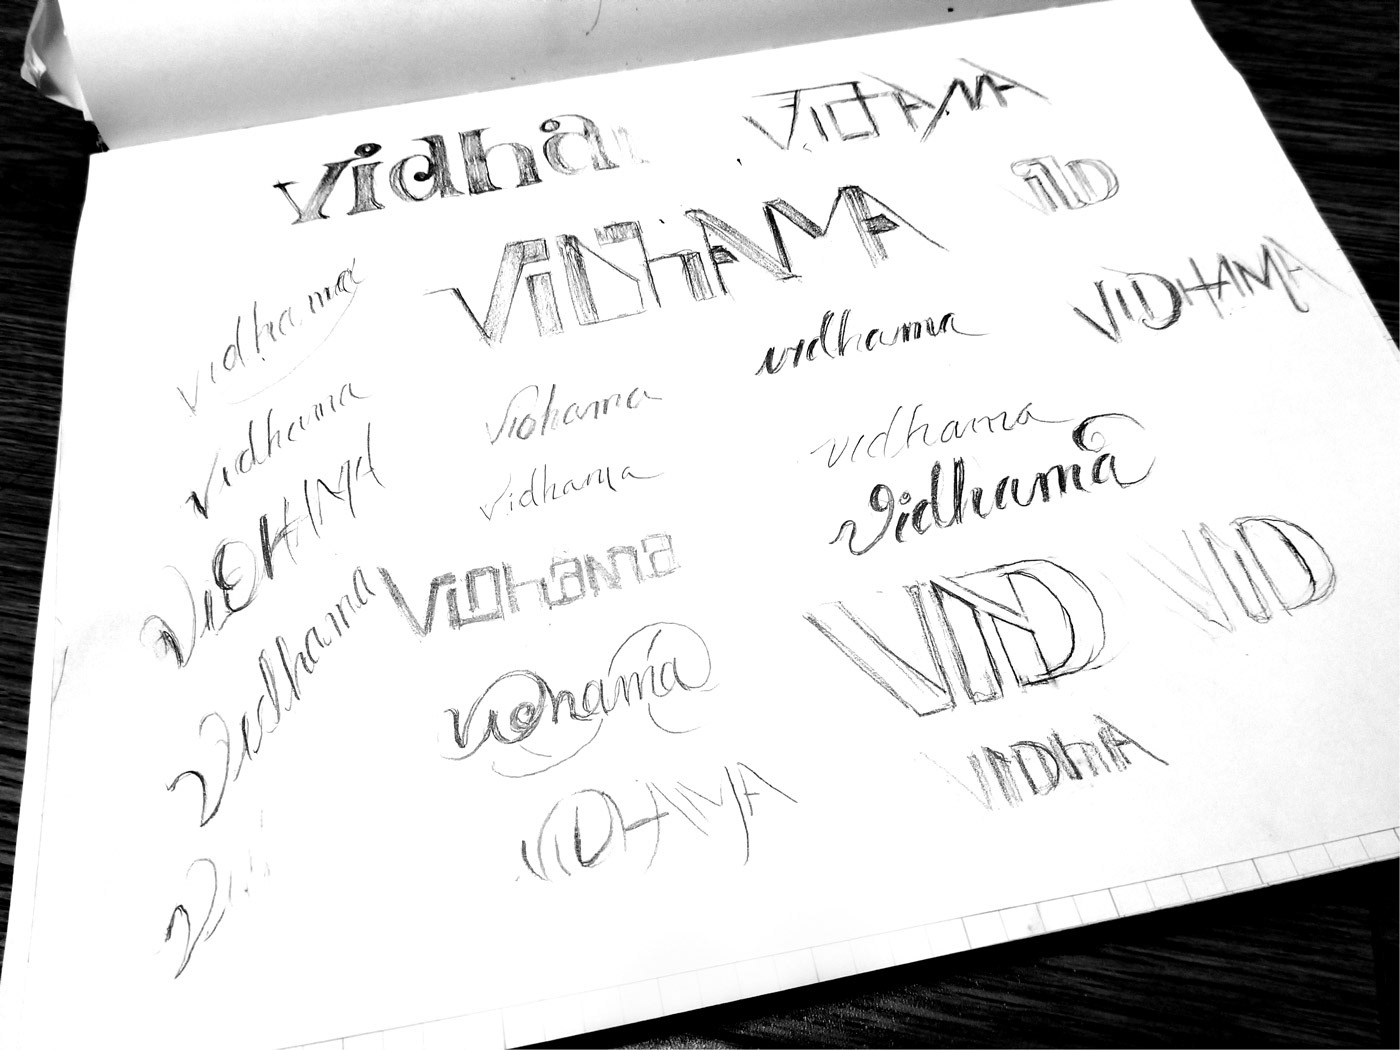 vidha
VIDHAMA
VID
VIDHAMA
vidhama
VIDHAMA
vidhama
vidhama
vidhama
vidhama
vidhama
VIDHAMA
vidhama
vidhama
Vidhama
Vidhama
VID
VID
Vidhama
vidhama
VIDHA
VIDHAMA
Vi